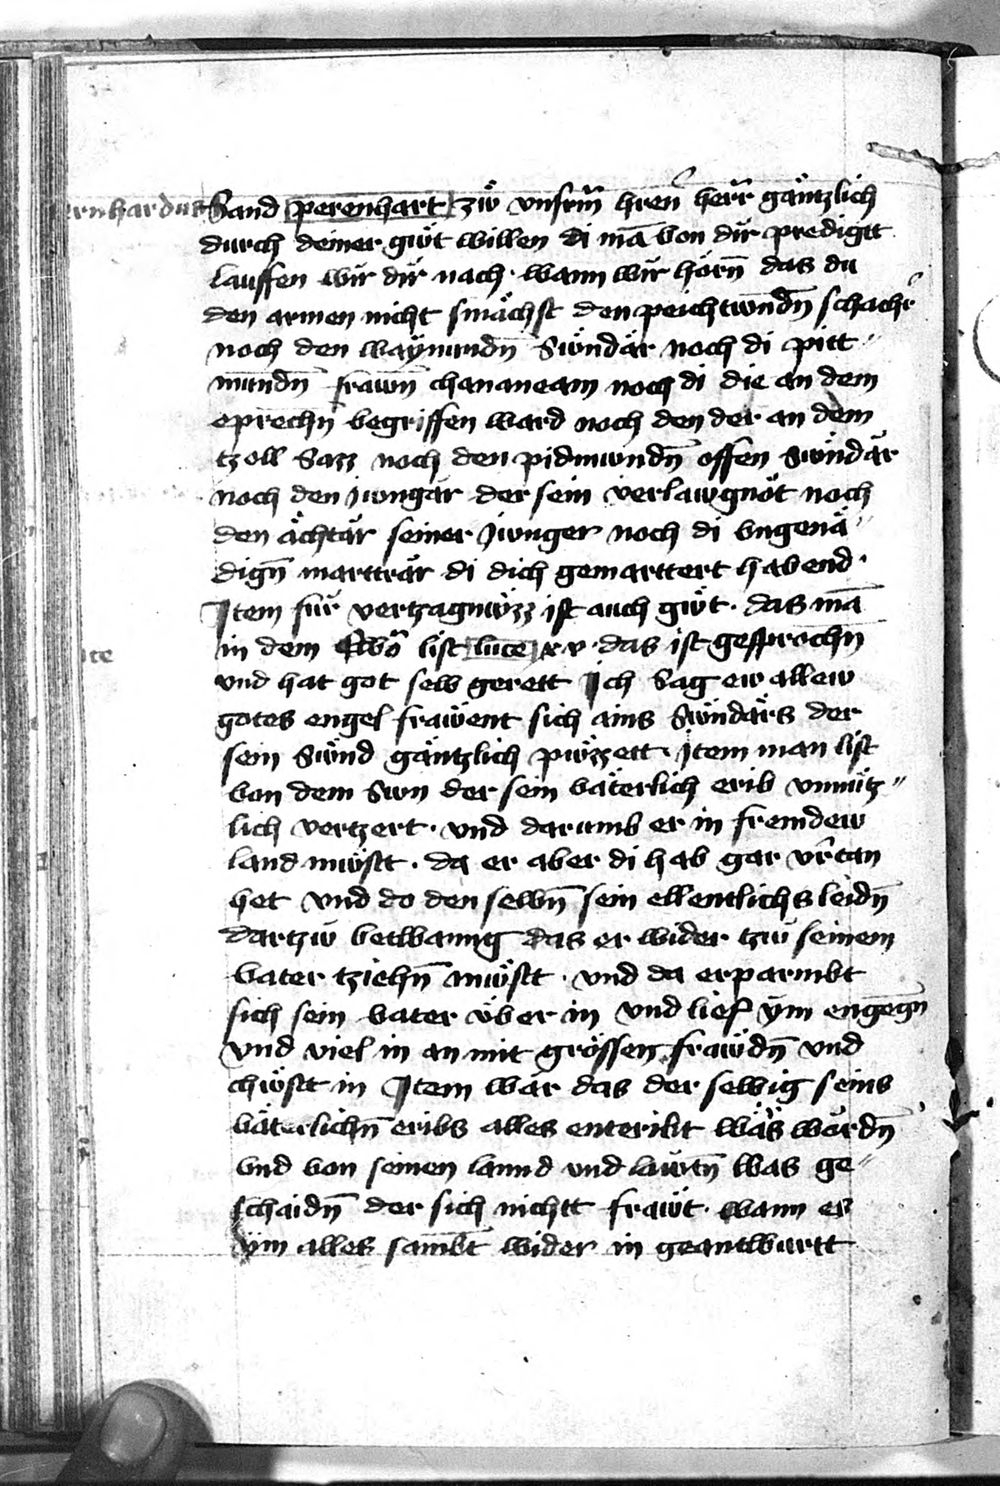 ernhardus Sand perenhart zẅ vnserm̄ hren̄ herr̄ gäntzlich
durch deiner gẅt willen di mā von dir predigtt
lauffen wir dir nach · wann wir hörn̄ das du
den armen nicht smächst den peichtwndn̄ schacher̄
noch den waÿnundn̄ Swndär noch di pitt〃
mundn̄ frawn̄ chananeam noch di die an dem
eprechn̄ begriffen ward noch den der an dem
tzoll Sazz noch den pidmwndn̄ offen swndär
noch den jwngär der sein verlawgnöt noch
den ächtär seiner jwnger noch di vngenä〃
dign̄ martträr di dich gemarttert habend ·
Item für vertzagnwzz ist auch gẅt · das mā
in dem Ewō list luce xv · das ist gesprochn̄
vnd hat got selb gerett Ich Sag ew allew
gotes engel frawent sich ains Swndärs der
sein Swnd gäntzlich pwzzett · Item man list
von dem Swn der sein väterlich erib vnnütz〃
lich vertzert · vnd darumb er in fremdew
land mẅstt · da er aber di hab gar vertan
het vnd do den selbn̄ sein ellentlichs leidn̄
dartzẅ betwanng das er wider tzw seinem
vater tziehn̄ mẅstt · vnd da erparmbt
sich sein vater vber in vnd lief ÿm engegn̄
vnd viel in an mit grössen frawdn̄ vnd
chẅstt in Item wär das der selbig seins
väterlichn̄ eribs alles enteribt wäs wordn̄
vnd von seinen lannd vnd läwtn̄ was ge〃
schaidn̄ der sich nichtt frawt · wann er
ÿm alles sambt wider in geantwurtt